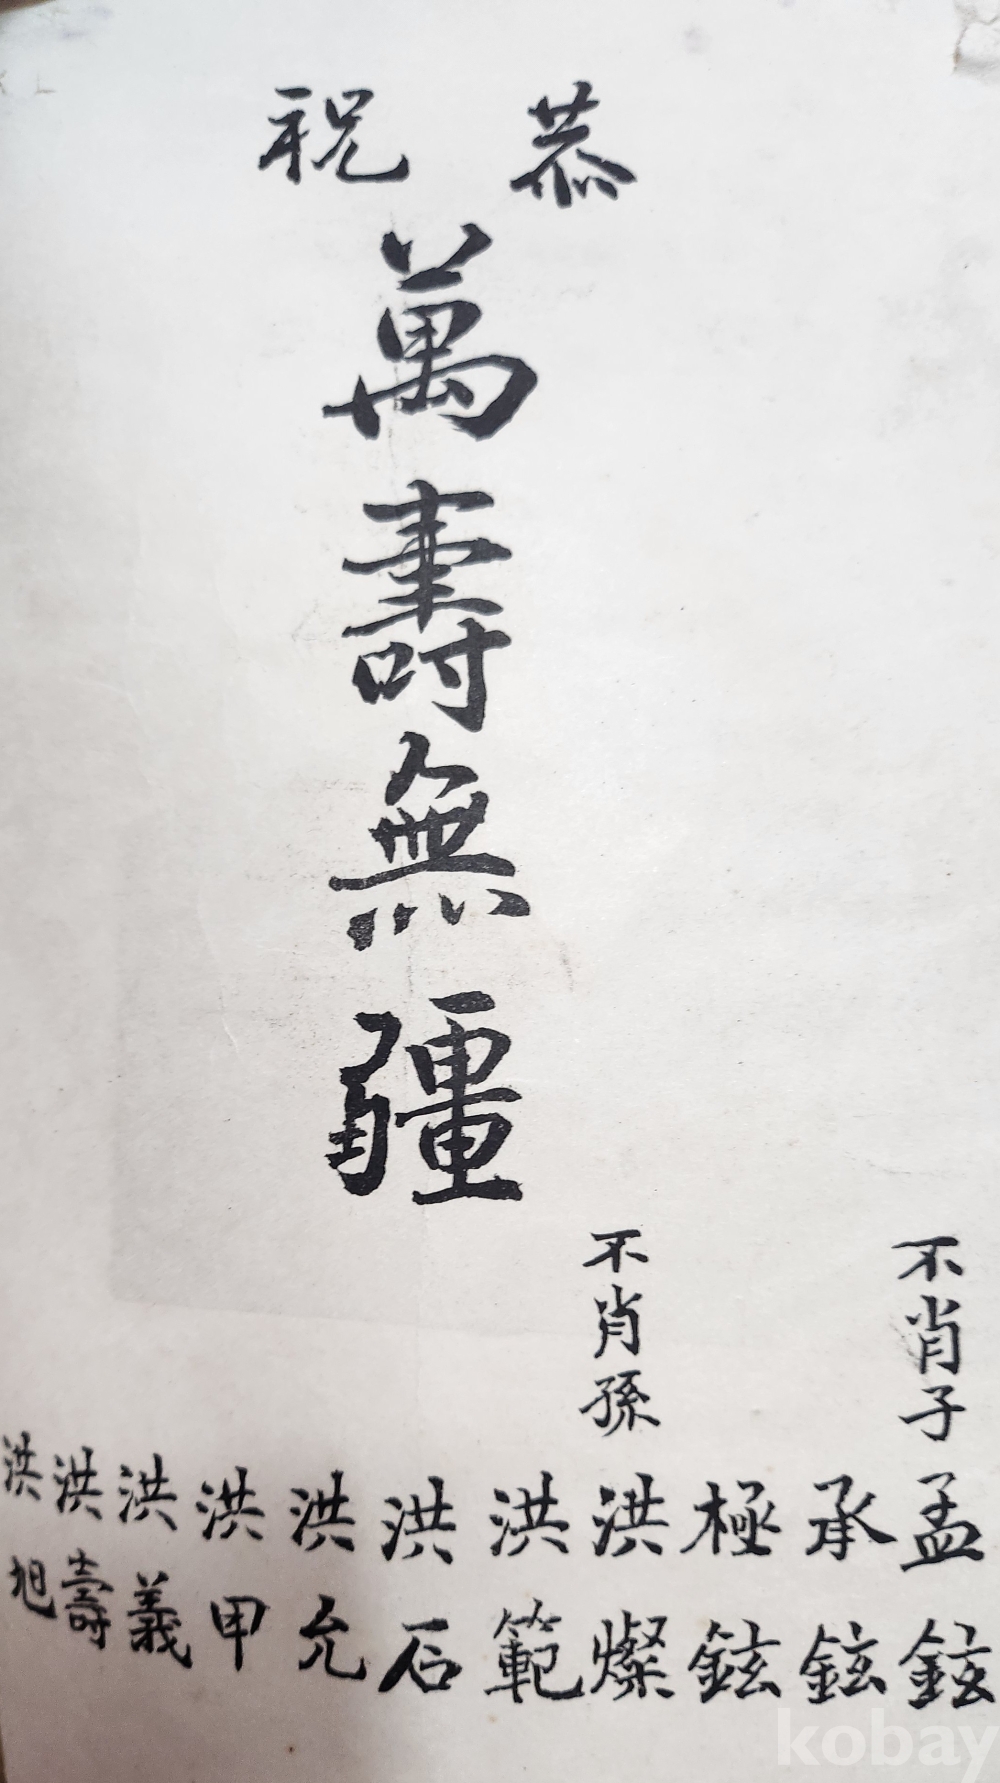 恭祝
萬壽無疆
不肖子 孟鉉
承鉉
極鉉
不肖孫 洪燦
洪範
洪石
洪允
洪甲
洪義
洪壽
洪旭
kobay